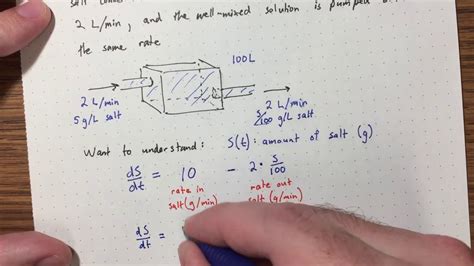 salt
2 L/min, and the well-mixed solution is pumped
the same rate
100L
2 L/min
5 g/L salt
2 L/min
S/100 g/L salt
Want to understand: S(t): amount of salt (g)
dS/dt = 10 - 2 · S/100
rate in rate out
salt (g/min) salt (g/min)
dS/dt =